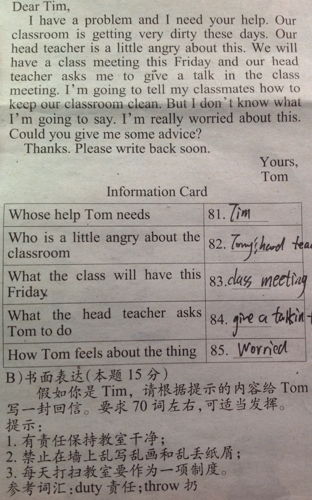 Dear Tim,
I have a problem and I need your help. Our
classroom is getting very dirty these days. Our
head teacher is a little angry about this. We will
have a class meeting this Friday and our head
teacher asks me to give a talk in the class
meeting. I'm going to tell my classmates how to
keep our classroom clean. But I don't know what
I'm going to say. I'm really worried about this.
Could you give me some advice?
Thanks. Please write back soon.
Yours,
Tom
Information Card
Whose help Tom needs 81. Tim
Who is a little angry about the 82. Tomy's head tea
classroom
What the class will have this 83. class meeting
Friday
What the head teacher asks 84. give a talk in t
Tom to do
How Tom feels about the thing 85. Worried
B)书面表达(本题 15 分)
假如你是 Tim, 请根据提示的内容给 Tom
写一封回信。要求 70 词左右,可适当发挥。
提示:
1. 有责任保持教室干净;
2. 禁止在墙上乱写乱画和乱丢纸屑;
3. 每天打扫教室要作为一项制度。
参考词汇:duty 责任;throw 扔